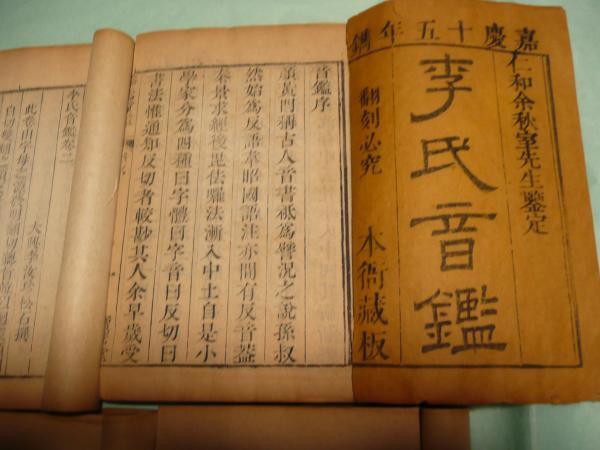 嘉慶十五年鐫
仁和余秋室先生鑒定
李氏音鑑
翻刻必究
本衙藏板
音鑑序
顏黃門稱古人音書祗為譬況之說孫叔
然始為反語韋昭國語注亦間有反音蓋
秦景求經後毘佉羅法漸入中土自是小
學家分為四種曰字體曰字音曰反切曰
書法惟通知反切者較尠其人余早歲受
李氏音鑑卷二
大興李汝珍松石撰
此卷由字母之